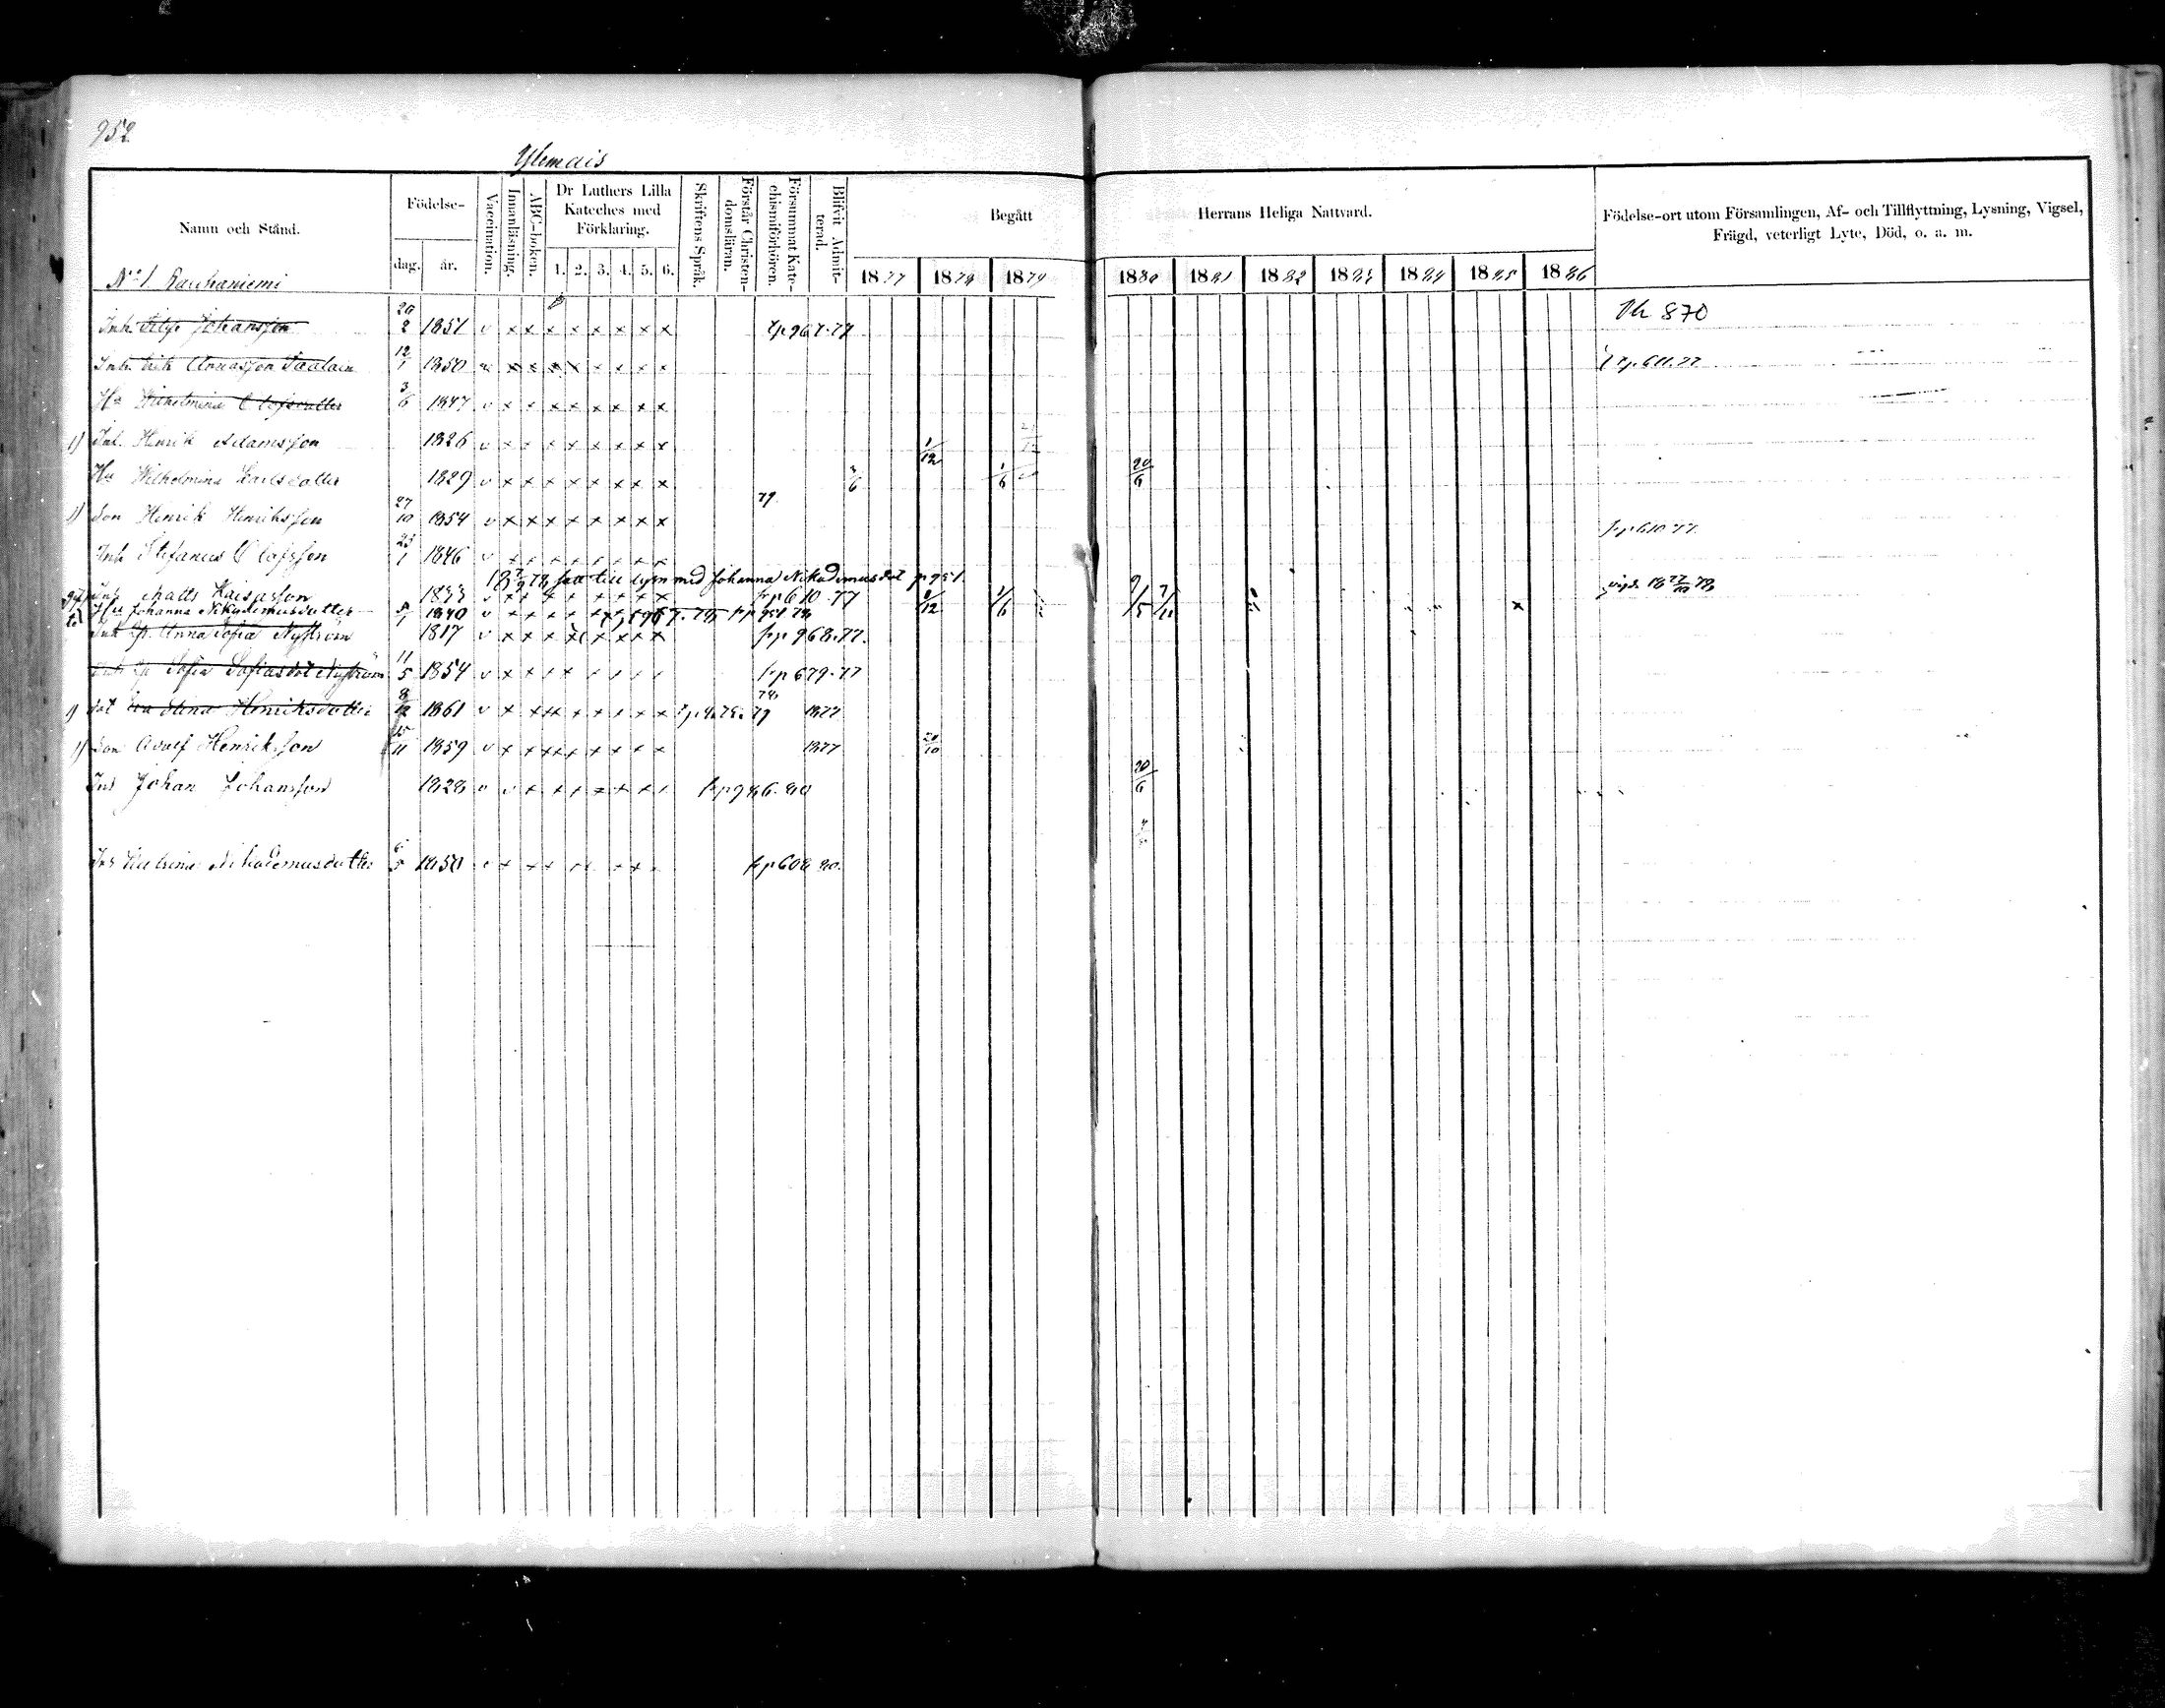 952
Ylemais
Namn och Stånd.
Födelse-
dag. år.
Vaccination.
Innanläsning.
ABC-boken.
Dr Luthers Lilla Kateches med Förklaring.
1. 2. 3. 4. 5. 6.
Skriftens Språk.
Förstår Christendomsläran.
Försummat Katechismiförhören.
Blifvit Admitterad.
Begått Herrans Heliga Nattvard.
1877 1878 1879 1880 1881 1882 1883 1884 1885 1886
Födelse-ort utom Församlingen, Af- och Tillflyttning, Lysning, Vigsel, Frägd, veterligt Lyte, Död, o. a. m.
No 1 Rauhaniemi
Inh. Johansson 20/2 1851 v x x x x x x x x 967.77 870
Inh. Erik 12/1 1850 x x x x x x x x p. 611.77
Hu Wilhelmina Olofsdotter 3/6 1847 v x x x x x x x x
1) Inh. Henrik Adamsson 1826 v x x x x x x x x 1/12
Hu Wilhelmina Carlsdotter 1829 v x x x x x x x x 3/6 1/6 20/6
1) Son Henrik Henriksson 27/10 1854 v x x x x x x x x 79 frp 610 77
Inh Stefanus Olofsson 23/1 1846 v x x x x x x x x
18 7/9 78 satt till lysn med Johanna Nikodemusdot p 951.
Inh Matts Kaisasson 1853 v x x x x x x x x frp 610.77 1/12 1/6 9/5 vigd. 18 27/10 78
Hu Johanna Nikodemusdotter 1840 v x x x x x 967.78 frp 951 78
Inh Anna Sofia Nyström 1817 v x x x x x x x frp 968.77.
Sofia Sofiasdot Nyström 11/5 1854 v x x x x x x x x frp 679.77
1) dot Eva Stina Henriksdotter 8/12 1861 v x x x x x x x x 79 78 1877
1) Son Adolf Henriksson 15/11 1859 v x x x x x x x x 1877 20/10
Johan Johansson 1828 v v x x x x x x x frp 986.80 20/6
Nikodemusdotter 6/5 1850 v x x x x x x x frp 608 80.